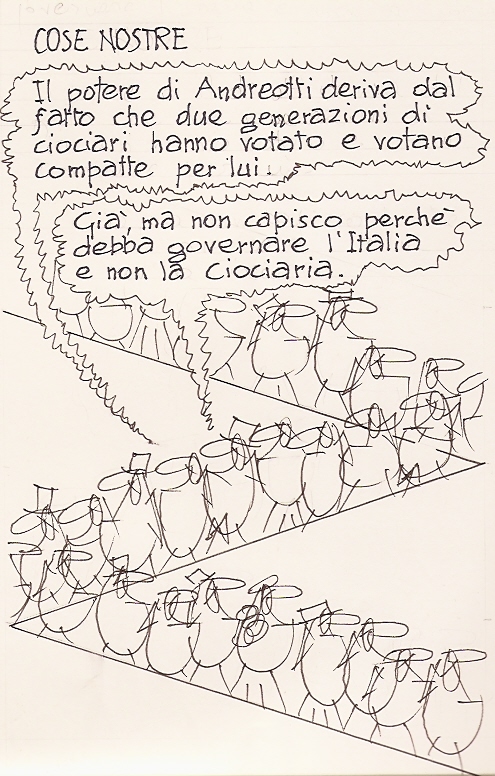 COSE NOSTRE
Il potere di Andreotti deriva dal
fatto che due generazioni di
ciociari hanno votato e votano
compatte per lui.
Già, ma non capisco perchè
debba governare l'Italia
e non la Ciociaria.